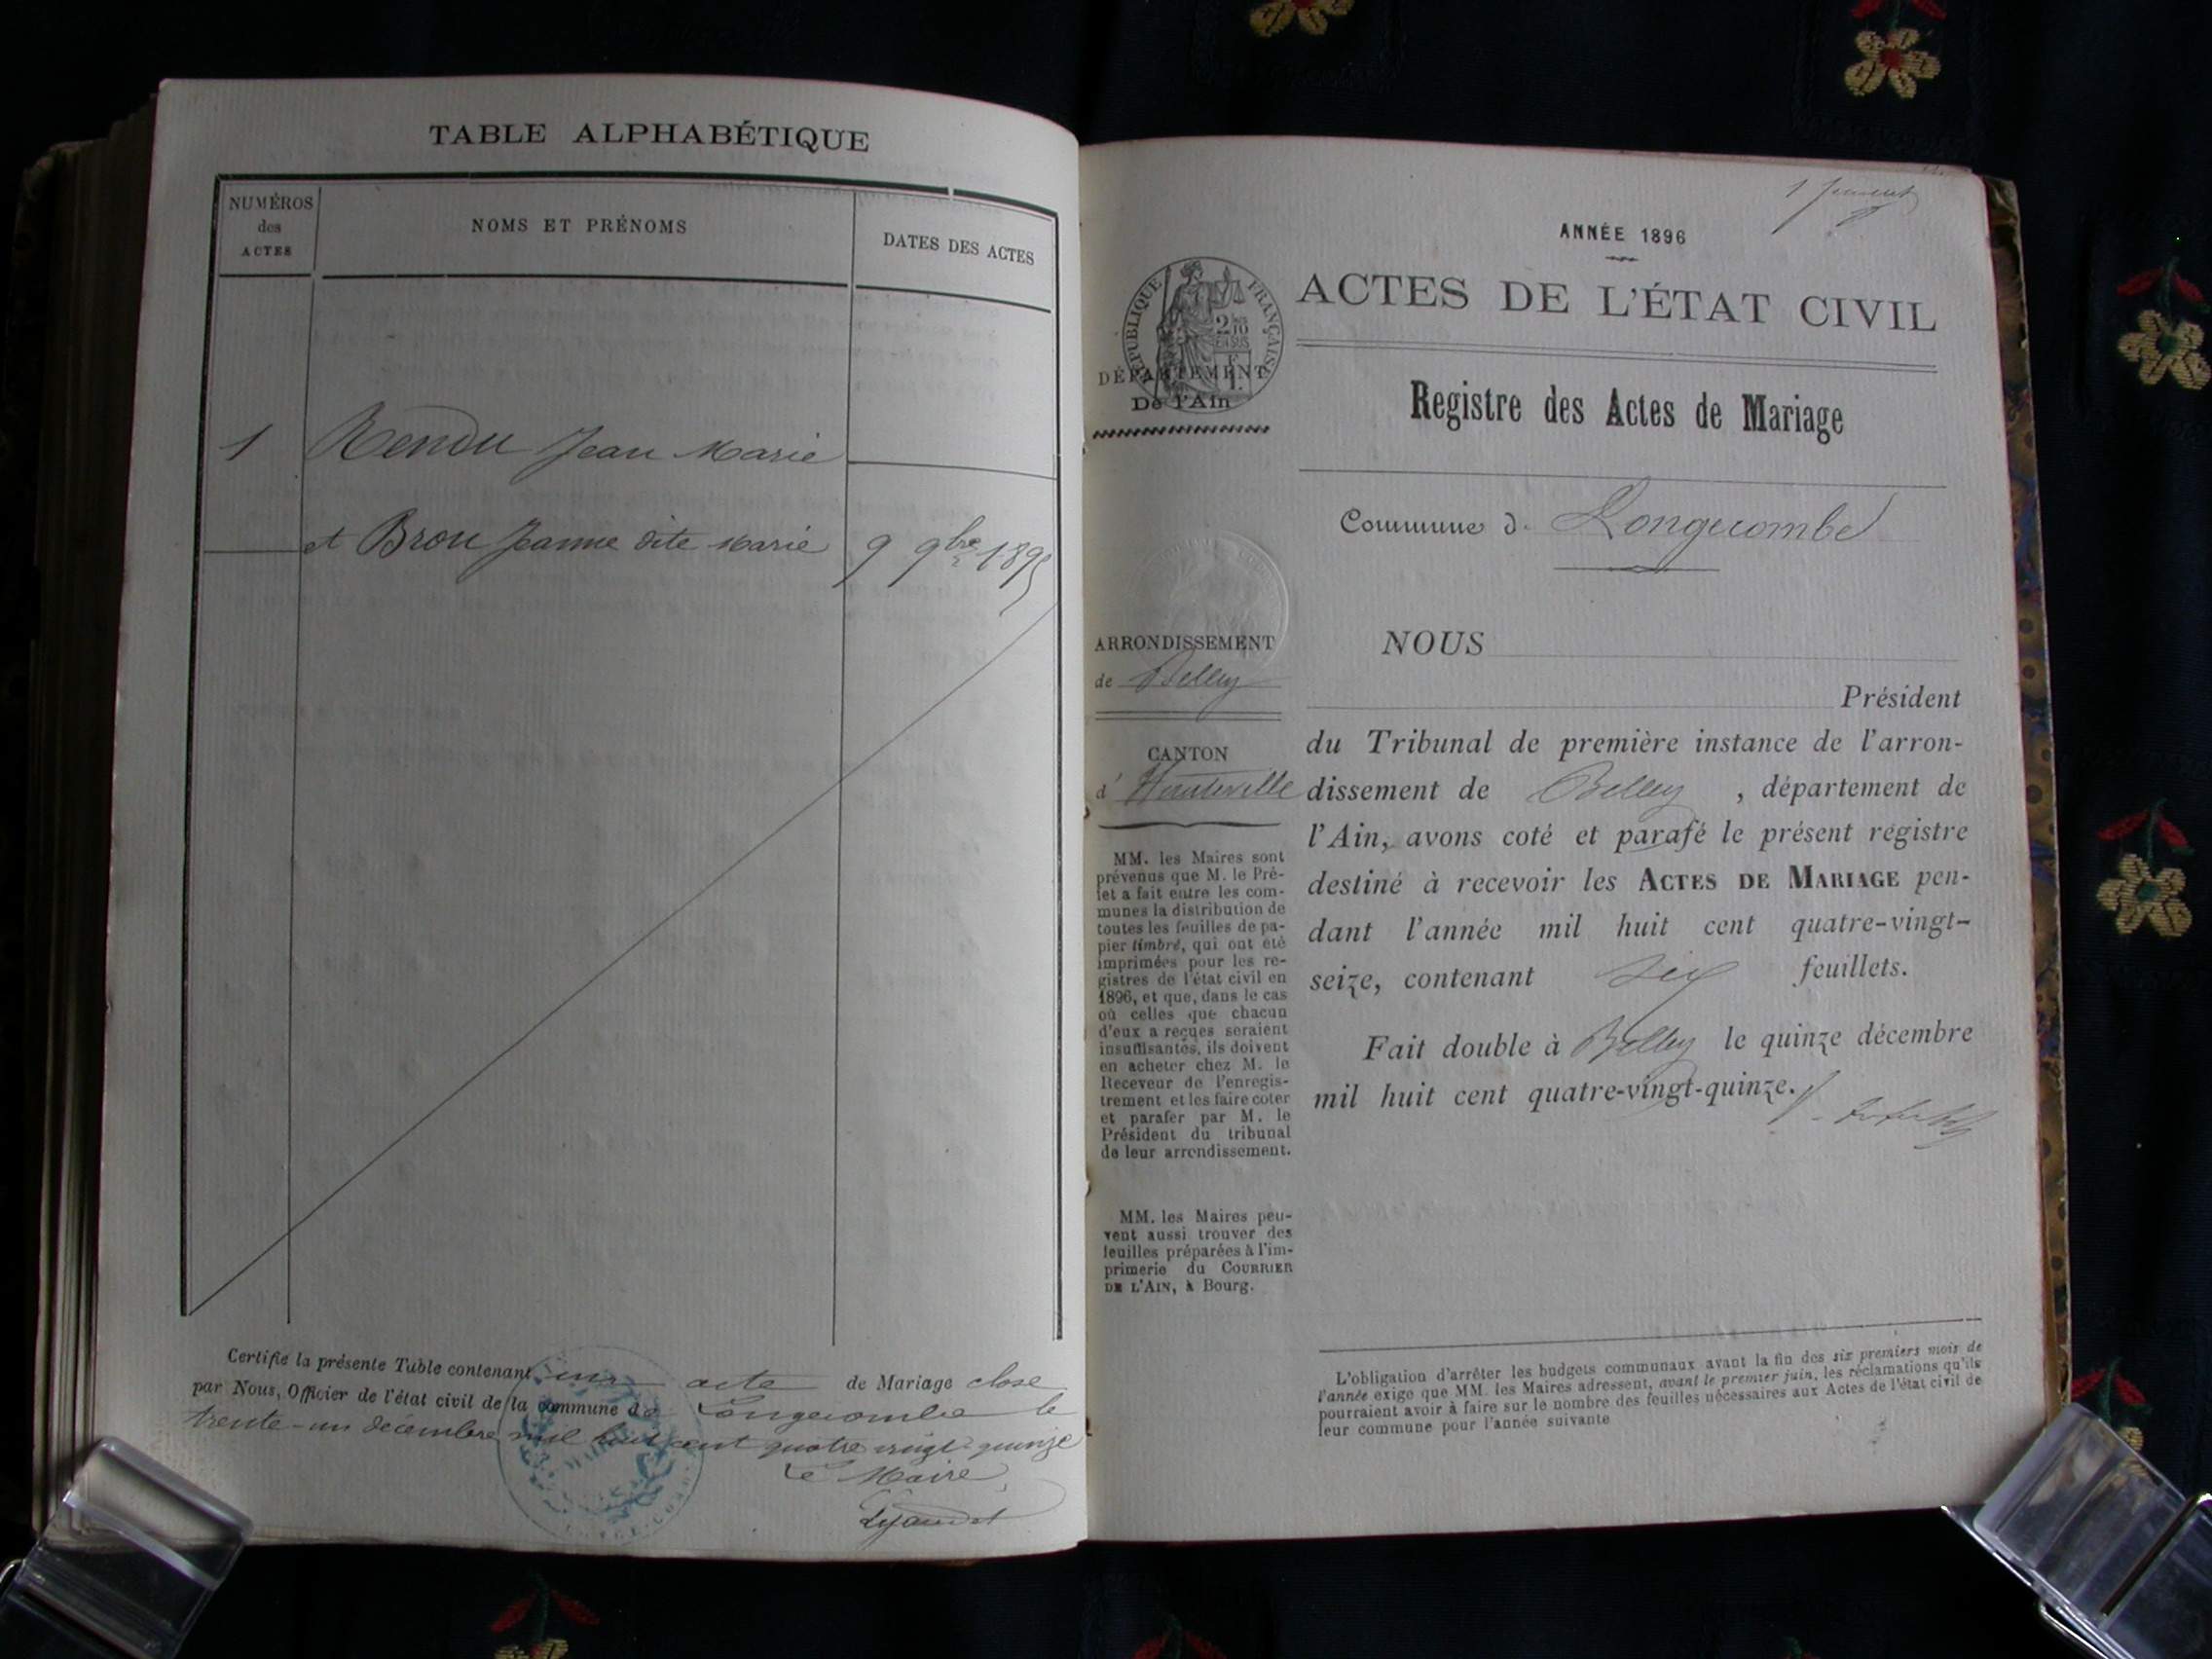 TABLE ALPHABÉTIQUE
NUMÉROS
des
ACTES
NOMS ET PRÉNOMS
DATES DES ACTES
1 Rendu Jean Marie
et Brou Jeanne dite Marie 9 9bre 1895
Certifie la présente Table contenant un acte de Mariage close
par Nous, Officier de l'état civil de la commune de Longecombe le
trente-un décembre mil huit cent quatre vingt-quinze
Le Maire,
1
ANNÉE 1896
ACTES DE L'ÉTAT CIVIL
RÉPUBLIQUE FRANÇAISE
DÉPARTEMENT
De l'Ain
Registre des Actes de Mariage
Commune d Longecombe
ARRONDISSEMENT
de Belley
CANTON
d'Hauteville
MM. les Maires sont
prévenus que M. le Pré-
fet a fait entre les com-
munes la distribution de
toutes les feuilles de pa-
pier timbré, qui ont été
imprimées pour les re-
gistres de l'état civil en
1896, et que, dans le cas
où celles que chacun
d'eux a reçues seraient
insuffisantes, ils doivent
en acheter chez M. le
Receveur de l'enregis-
trement et les faire coter
et parafer par M. le
Président du tribunal
de leur arrondissement.
MM. les Maires peu-
vent aussi trouver des
feuilles préparées à l'im-
primerie du COURRIER
DE L'AIN, à Bourg.
NOUS
Président
du Tribunal de première instance de l'arron-
dissement de Belley, département de
l'Ain, avons coté et parafé le présent registre
destiné à recevoir les ACTES DE MARIAGE pen-
dant l'année mil huit cent quatre-vingt-
seize, contenant six feuillets.
Fait double à Belley le quinze décembre
mil huit cent quatre-vingt-quinze.
L'obligation d'arrêter les budgets communaux avant la fin des six premiers mois de
l'année exige que MM. les Maires adressent, avant le premier juin, les réclamations qu'ils
pourraient avoir à faire sur le nombre des feuilles nécessaires aux Actes de l'état civil de
leur commune pour l'année suivante